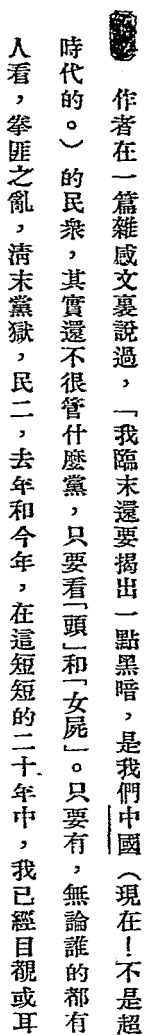 作者在一篇雜感文裏說過，「我臨末還要揭出一點黑暗，是我們中國（現在！不是超
時代的。）的民衆，其實還不很管什麼黨，只要看「頭」和「女屍」。只要有，無論誰的都有
人看，拳匪之亂，清末黨獄，民二，去年和今年，在這短短的二十年中，我已經目覩或耳